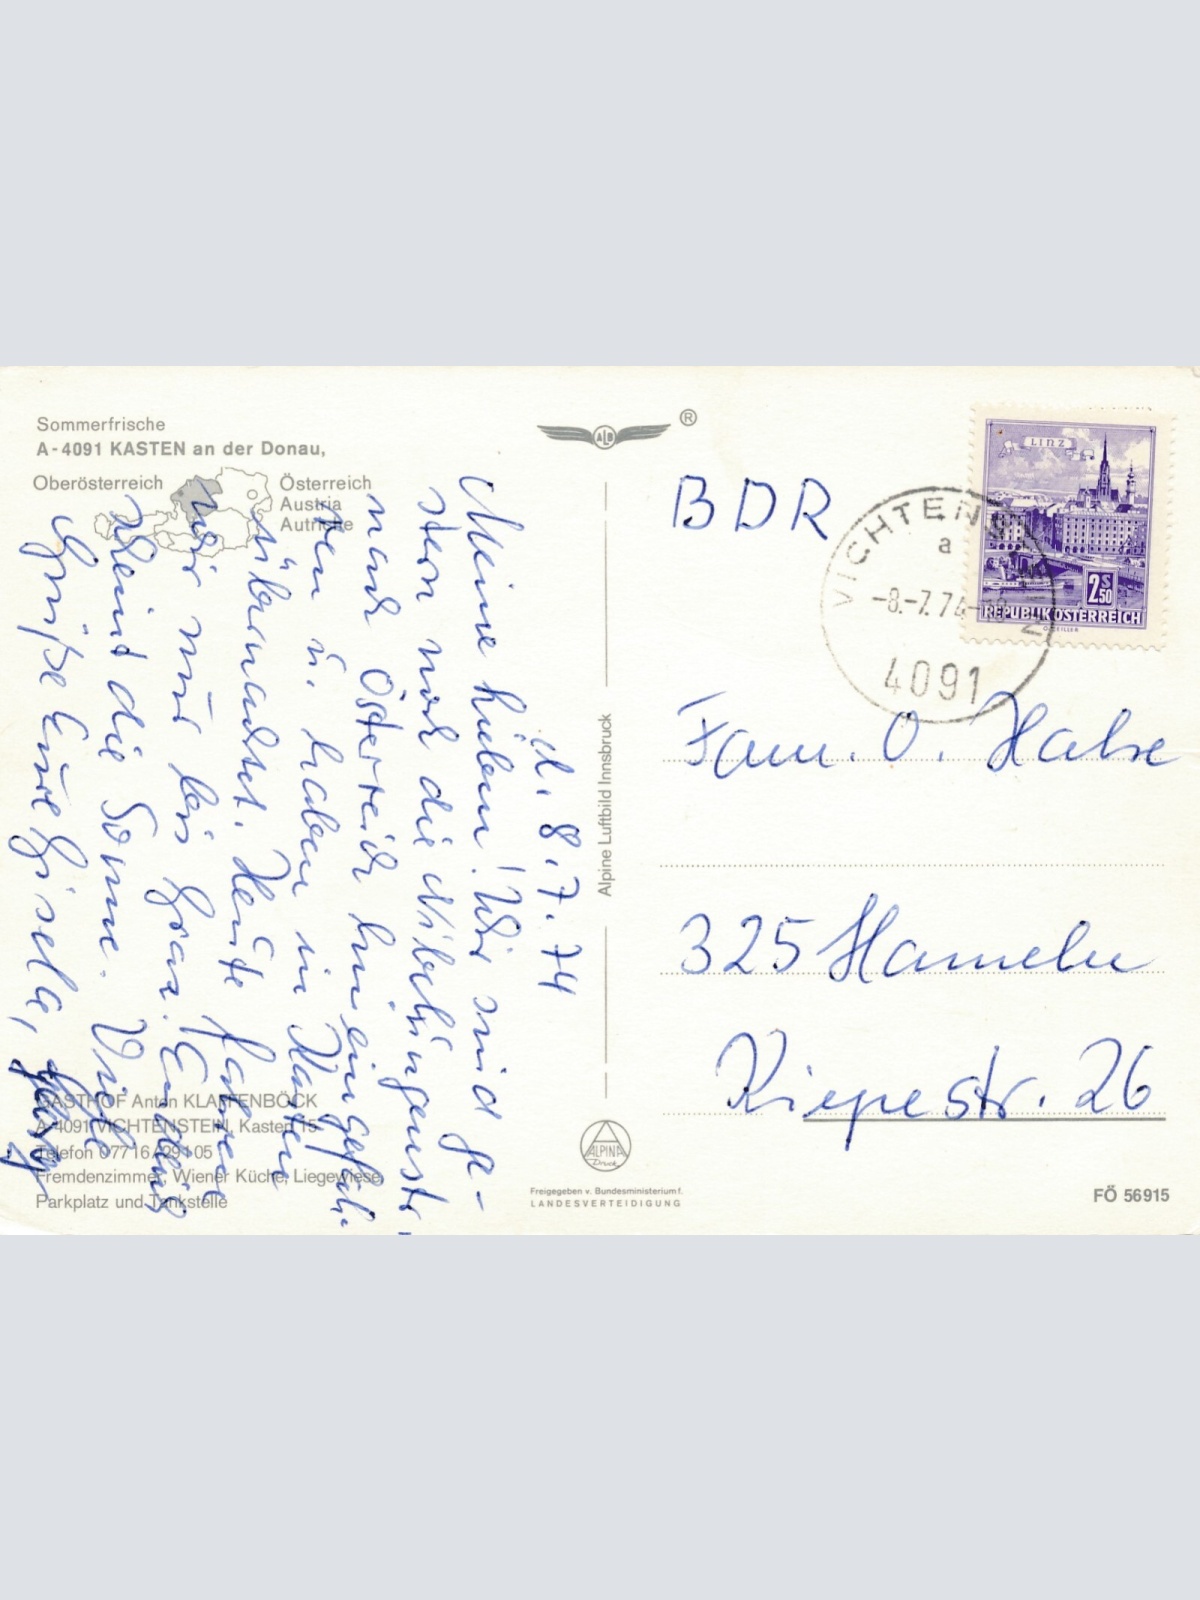 Sommerfrische
A-4091 KASTEN an der Donau,
Oberösterreich
Österreich
Austria
Autriche
ALB
®
d. 8.7.74
Meine Lieben! Wir sind ge-
stern noch die Nibelungenstr.
nach Österreich hineingefah-
ren u. haben in Kasten
übernachtet. Heute fahren
wir nur bis Gran. Endlich
scheint die Sonne. Viele
Grüße Eure Gisela,
GASTHOF Anton KLAFFENBÖCK
A-4091 VICHTENSTEIN, Kasten 15
Telefon 07716/29105
Fremdenzimmer, Wiener Küche, Liegewiese,
Parkplatz und Tankstelle
Alpine Luftbild Innsbruck
ALPINA
Druck
Freigegeben v. Bundesministerium f.
LANDESVERTEIDIGUNG
BDR
LINZ
2S50
REPUBLIK ÖSTERREICH
VICHTENSTEIN
a
-8.-7.74-18
4091
Fam. O. Halse
325 Hameln
Riepestr. 26
FÖ 56915